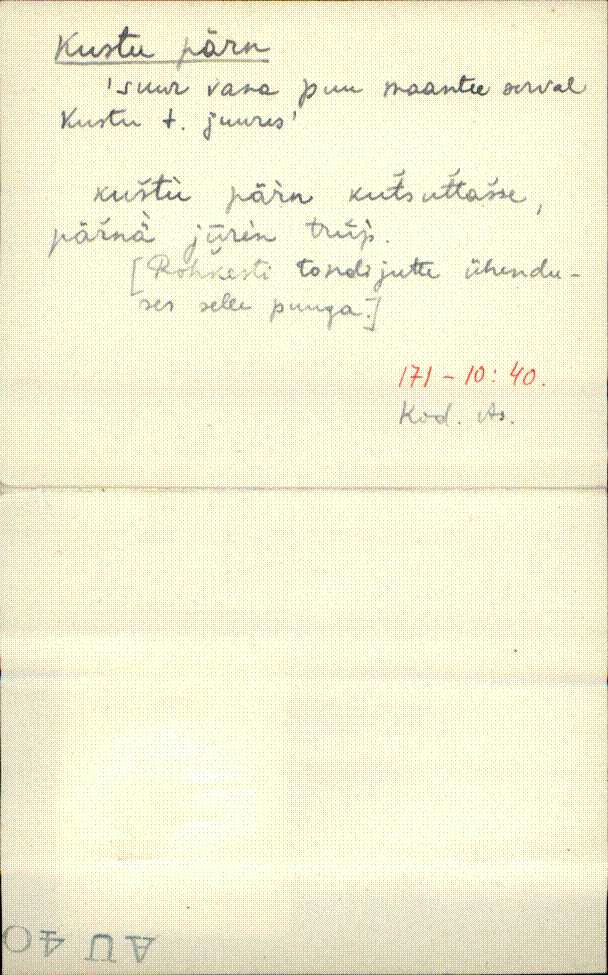 Kustu pärn
'suur vana puu maantee serval
Kustu t. juures'
kuštù pärn kut̆sut̆tašse,
pär̆nà jūren
[Rohkesti tondijutte ühendu-
ses selle puuga.]
171 - 10: 40.
Kod.
AU 40